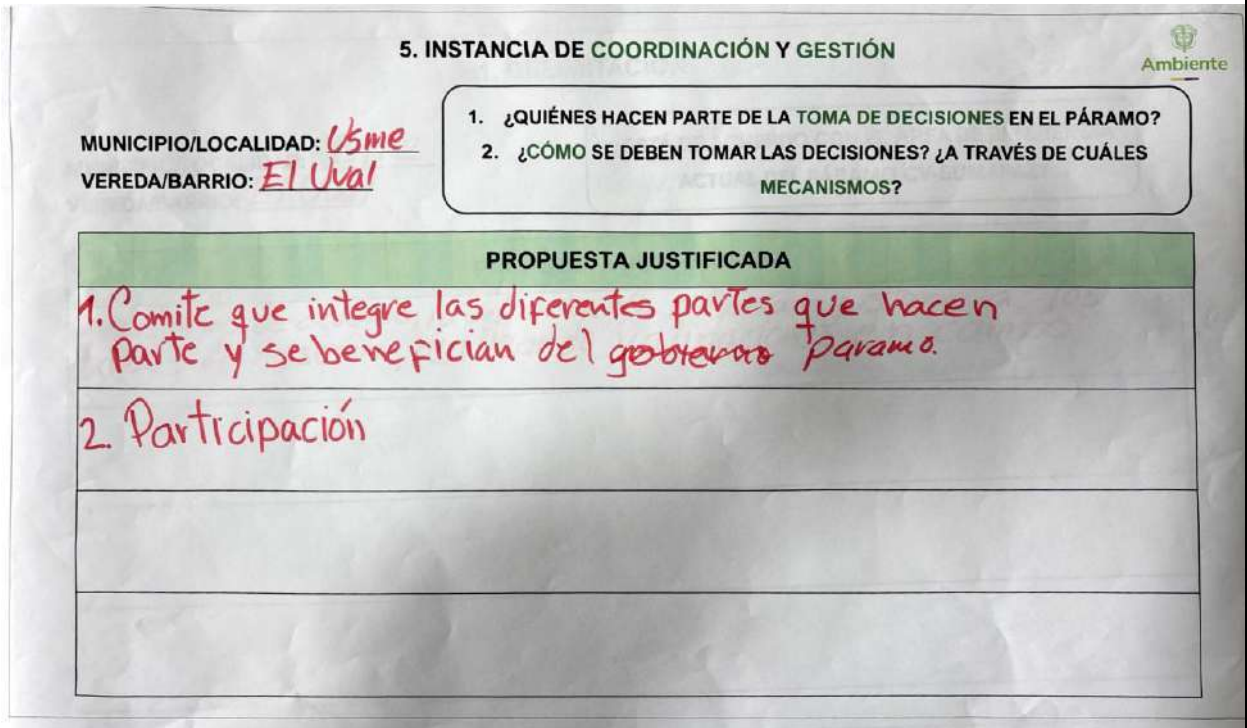 5. INSTANCIA DE COORDINACIÓN Y GESTIÓN
Ambiente
MUNICIPIO/LOCALIDAD: Usme
VEREDA/BARRIO: El Uval
1. ¿QUIÉNES HACEN PARTE DE LA TOMA DE DECISIONES EN EL PÁRAMO?
2. ¿CÓMO SE DEBEN TOMAR LAS DECISIONES? ¿A TRAVÉS DE CUÁLES
MECANISMOS?
PROPUESTA JUSTIFICADA
1. Comite que integre las diferentes partes que hacen
parte y se benefician del gobierno paramo.
2. Participación